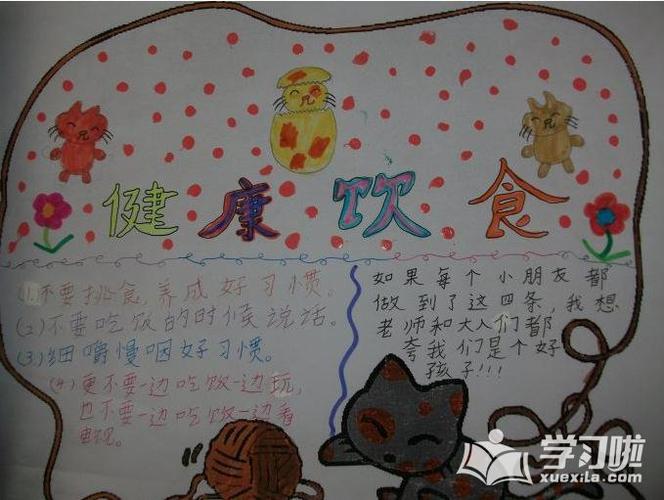 健康饮食
(1)不要挑食,养成好习惯。
(2)不要吃饭的时候说话。
(3)细嚼慢咽好习惯。
(4)更不要一边吃饭一边玩,
也不要一边吃饭一边看
电视。
如果每个小朋友都
做到了这四条,我想
老师和大人们都
夸我们是个好
孩子!!!
学习啦
xuexila.com